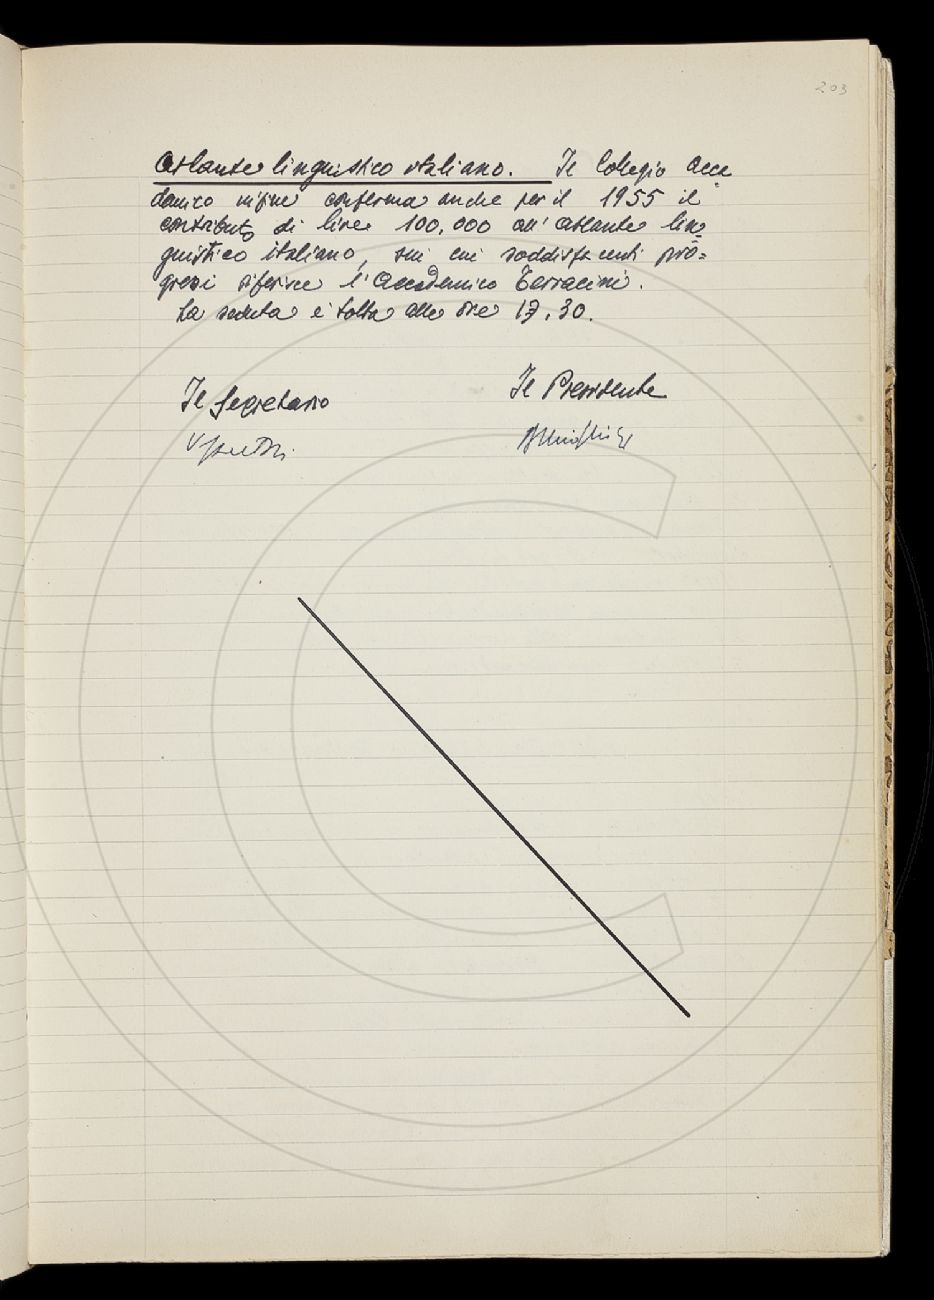 203
Atlante linguistico italiano. Il Collegio Acca
demico infine conferma anche per il 1955 il
contributo di lire 100.000 all'Atlante lin=
guistico italiano, sui cui soddisfacenti pro=
gressi riferisce l'Accademico Terracini.
La seduta è tolta alle ore 17,30.
Il Segretario
Il Presidente